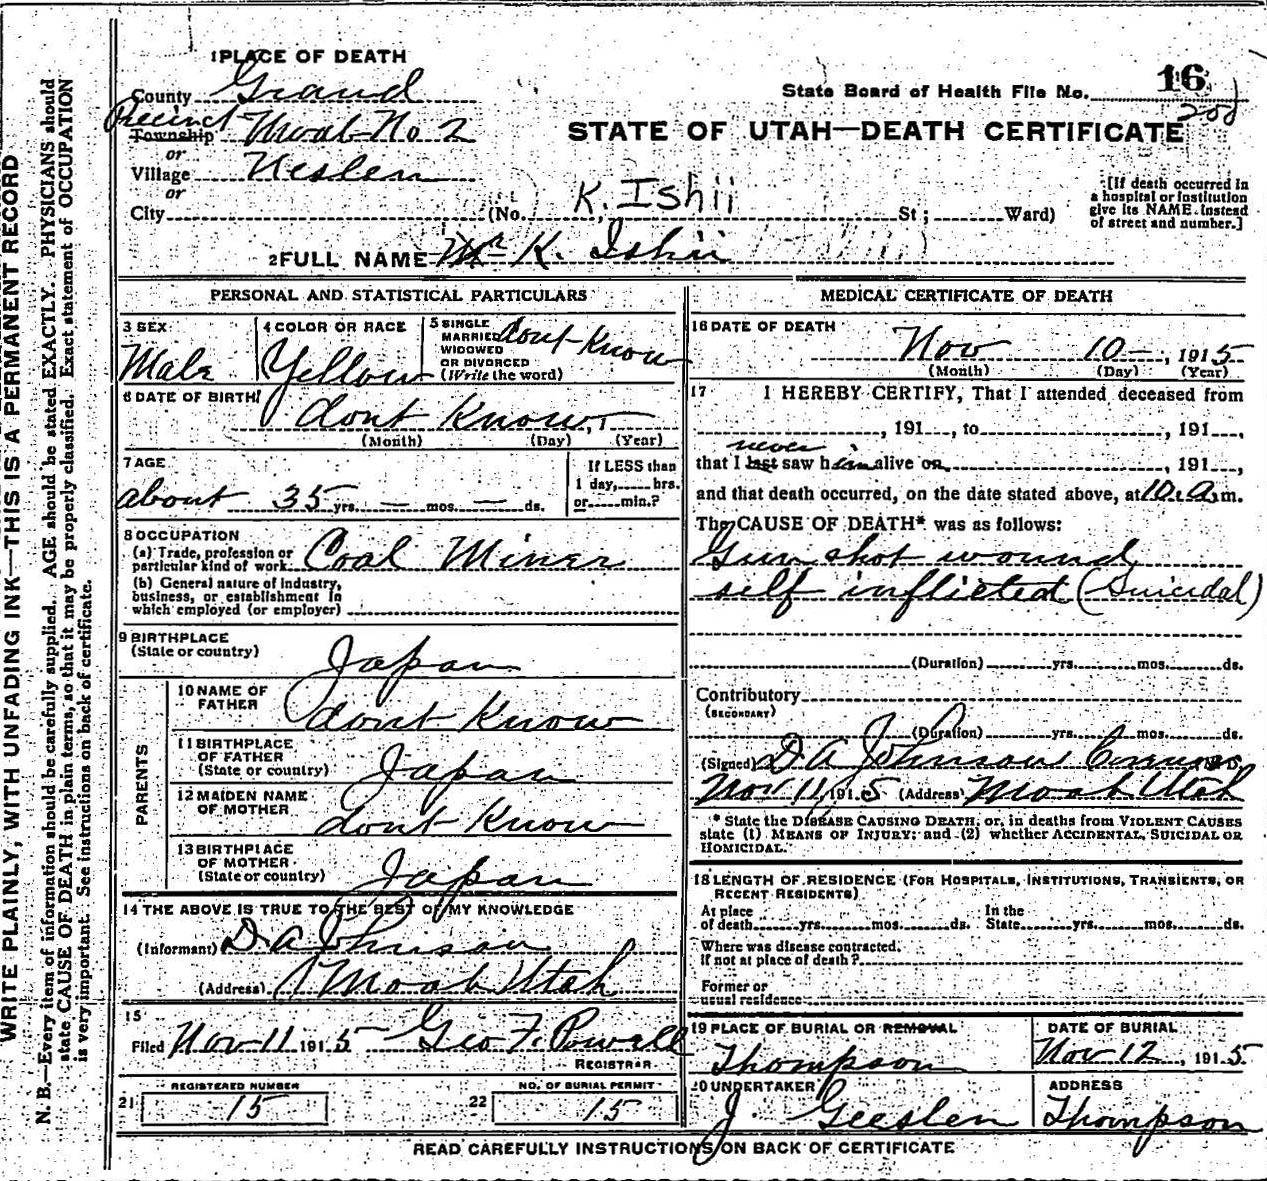 1 PLACE OF DEATH
County Grand
Precinct Township Moab No 2
or
Village Neslen
or
City (No. K. Ishii St; Ward)
State Board of Health File No. 16
200
STATE OF UTAH—DEATH CERTIFICATE
[If death occurred in
a hospital or institution
give its NAME instead
of street and number.]
2 FULL NAME Mr K. Ishii
PERSONAL AND STATISTICAL PARTICULARS
3 SEX
Male
4 COLOR OR RACE
Yellow
5 SINGLE
MARRIED
WIDOWED
OR DIVORCED
(Write the word)
dont Know
6 DATE OF BIRTH
dont Know
(Month) (Day) (Year)
7 AGE
about 35 yrs. — mos. — ds.
If LESS than
1 day, hrs.
or min.?
8 OCCUPATION
(a) Trade, profession or
particular kind of work Coal Miner
(b) General nature of industry,
business, or establishment in
which employed (or employer)
9 BIRTHPLACE
(State or country) Japan
PARENTS
10 NAME OF
FATHER dont Know
11 BIRTHPLACE
OF FATHER
(State or country) Japan
12 MAIDEN NAME
OF MOTHER dont Know
13 BIRTHPLACE
OF MOTHER
(State or country) Japan
14 THE ABOVE IS TRUE TO THE BEST OF MY KNOWLEDGE
(Informant) D A Johnson
(Address) Moab Utah
15
Filed Nov 11 1915 Geo F. Powell
REGISTRAR
21 REGISTERED NUMBER
15
22 NO. OF BURIAL PERMIT
15
MEDICAL CERTIFICATE OF DEATH
16 DATE OF DEATH
Nov 10 —, 1915
(Month) (Day) (Year)
17 I HEREBY CERTIFY, That I attended deceased from
, 191 , to , 191 ,
never
that I last saw him alive on , 191 ,
and that death occurred, on the date stated above, at 10 a. m.
The CAUSE OF DEATH* was as follows:
Gun shot wound
self inflicted (Suicidal)
(Duration) yrs. mos. ds.
Contributory
(SECONDARY)
(Duration) yrs. mos. ds.
(Signed) D A Johnson
Nov 11, 1915 (Address) Moab Utah
* State the DISEASE CAUSING DEATH, or, in deaths from VIOLENT CAUSES
state (1) MEANS OF INJURY; and (2) whether ACCIDENTAL, SUICIDAL OR
HOMICIDAL.
18 LENGTH OF RESIDENCE (FOR HOSPITALS, INSTITUTIONS, TRANSIENTS, OR
RECENT RESIDENTS)
At place
of death yrs. mos. ds.
In the
State yrs. mos. ds.
Where was disease contracted,
if not at place of death?
Former or
usual residence
19 PLACE OF BURIAL OR REMOVAL
Thompson
DATE OF BURIAL
Nov 12, 1915
20 UNDERTAKER
J. Geeslen
ADDRESS
Thompson
READ CAREFULLY INSTRUCTIONS ON BACK OF CERTIFICATE
WRITE PLAINLY, WITH UNFADING INK—THIS IS A PERMANENT RECORD
N. B.—Every item of information should be carefully supplied. AGE should be stated EXACTLY. PHYSICIANS should
state CAUSE OF DEATH in plain terms, so that it may be properly classified. Exact statement of OCCUPATION
is very important. See instructions on back of certificate.